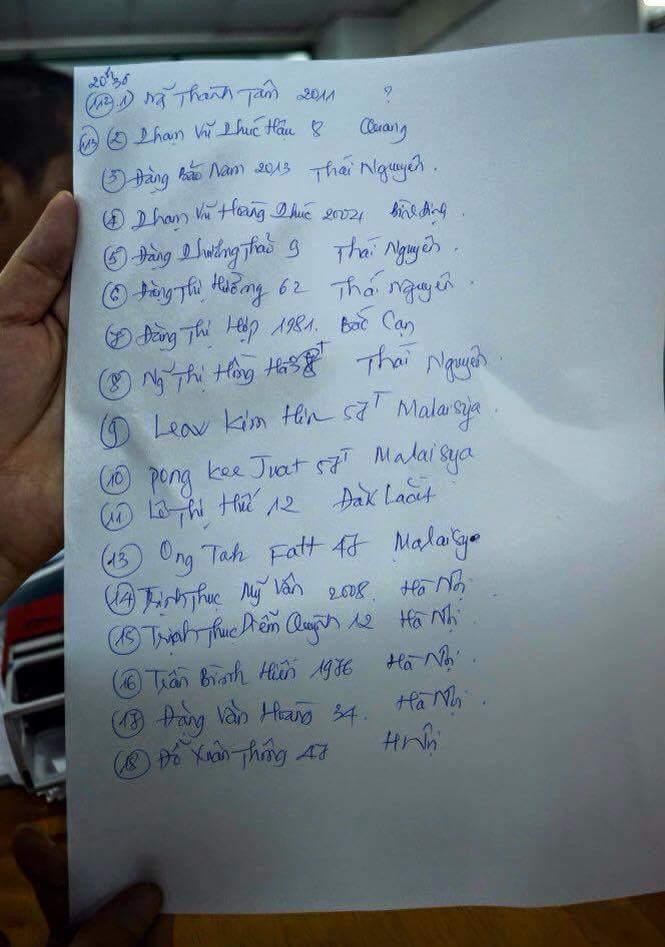 20h36
(112) 1) Ng Thành Tâm 2011 ?
(113) (2) Phạm Vũ Phúc Hậu 8 Quang
(3) Đàng Bảo Nam 2013 Thái Nguyên.
(4) Phạm Vũ Hoàng Phúc 2002
(5) Đàng Phương Thảo 9 Thái Nguyên.
(6) Đàng Thị Hưởng 62 Thái Nguyên.
(7) Đàng Thị Hợp 1981. Bắc Cạn
(8) Ng Thị Hồng Thái Nguyên.
(9) Leow Kim Hin 57T Malaisya.
(10) Pong Kee Juat 57T Malaisya
(11) Lê Thị Huế 12
(13) Ong Tah Fatt 47 Malaisya
(14) Trịnh Thục Mỹ Vân 2008. Hà Nội
(15) Trịnh Thục Diễm Quỳnh 12 Hà Nội.
(16) Trần Bình Hiền 1976 Hà Nội.
(17) Đàng Văn Hoàng 34. Hà Nội.
(18) Đỗ Xuân Thông 47 H Nội